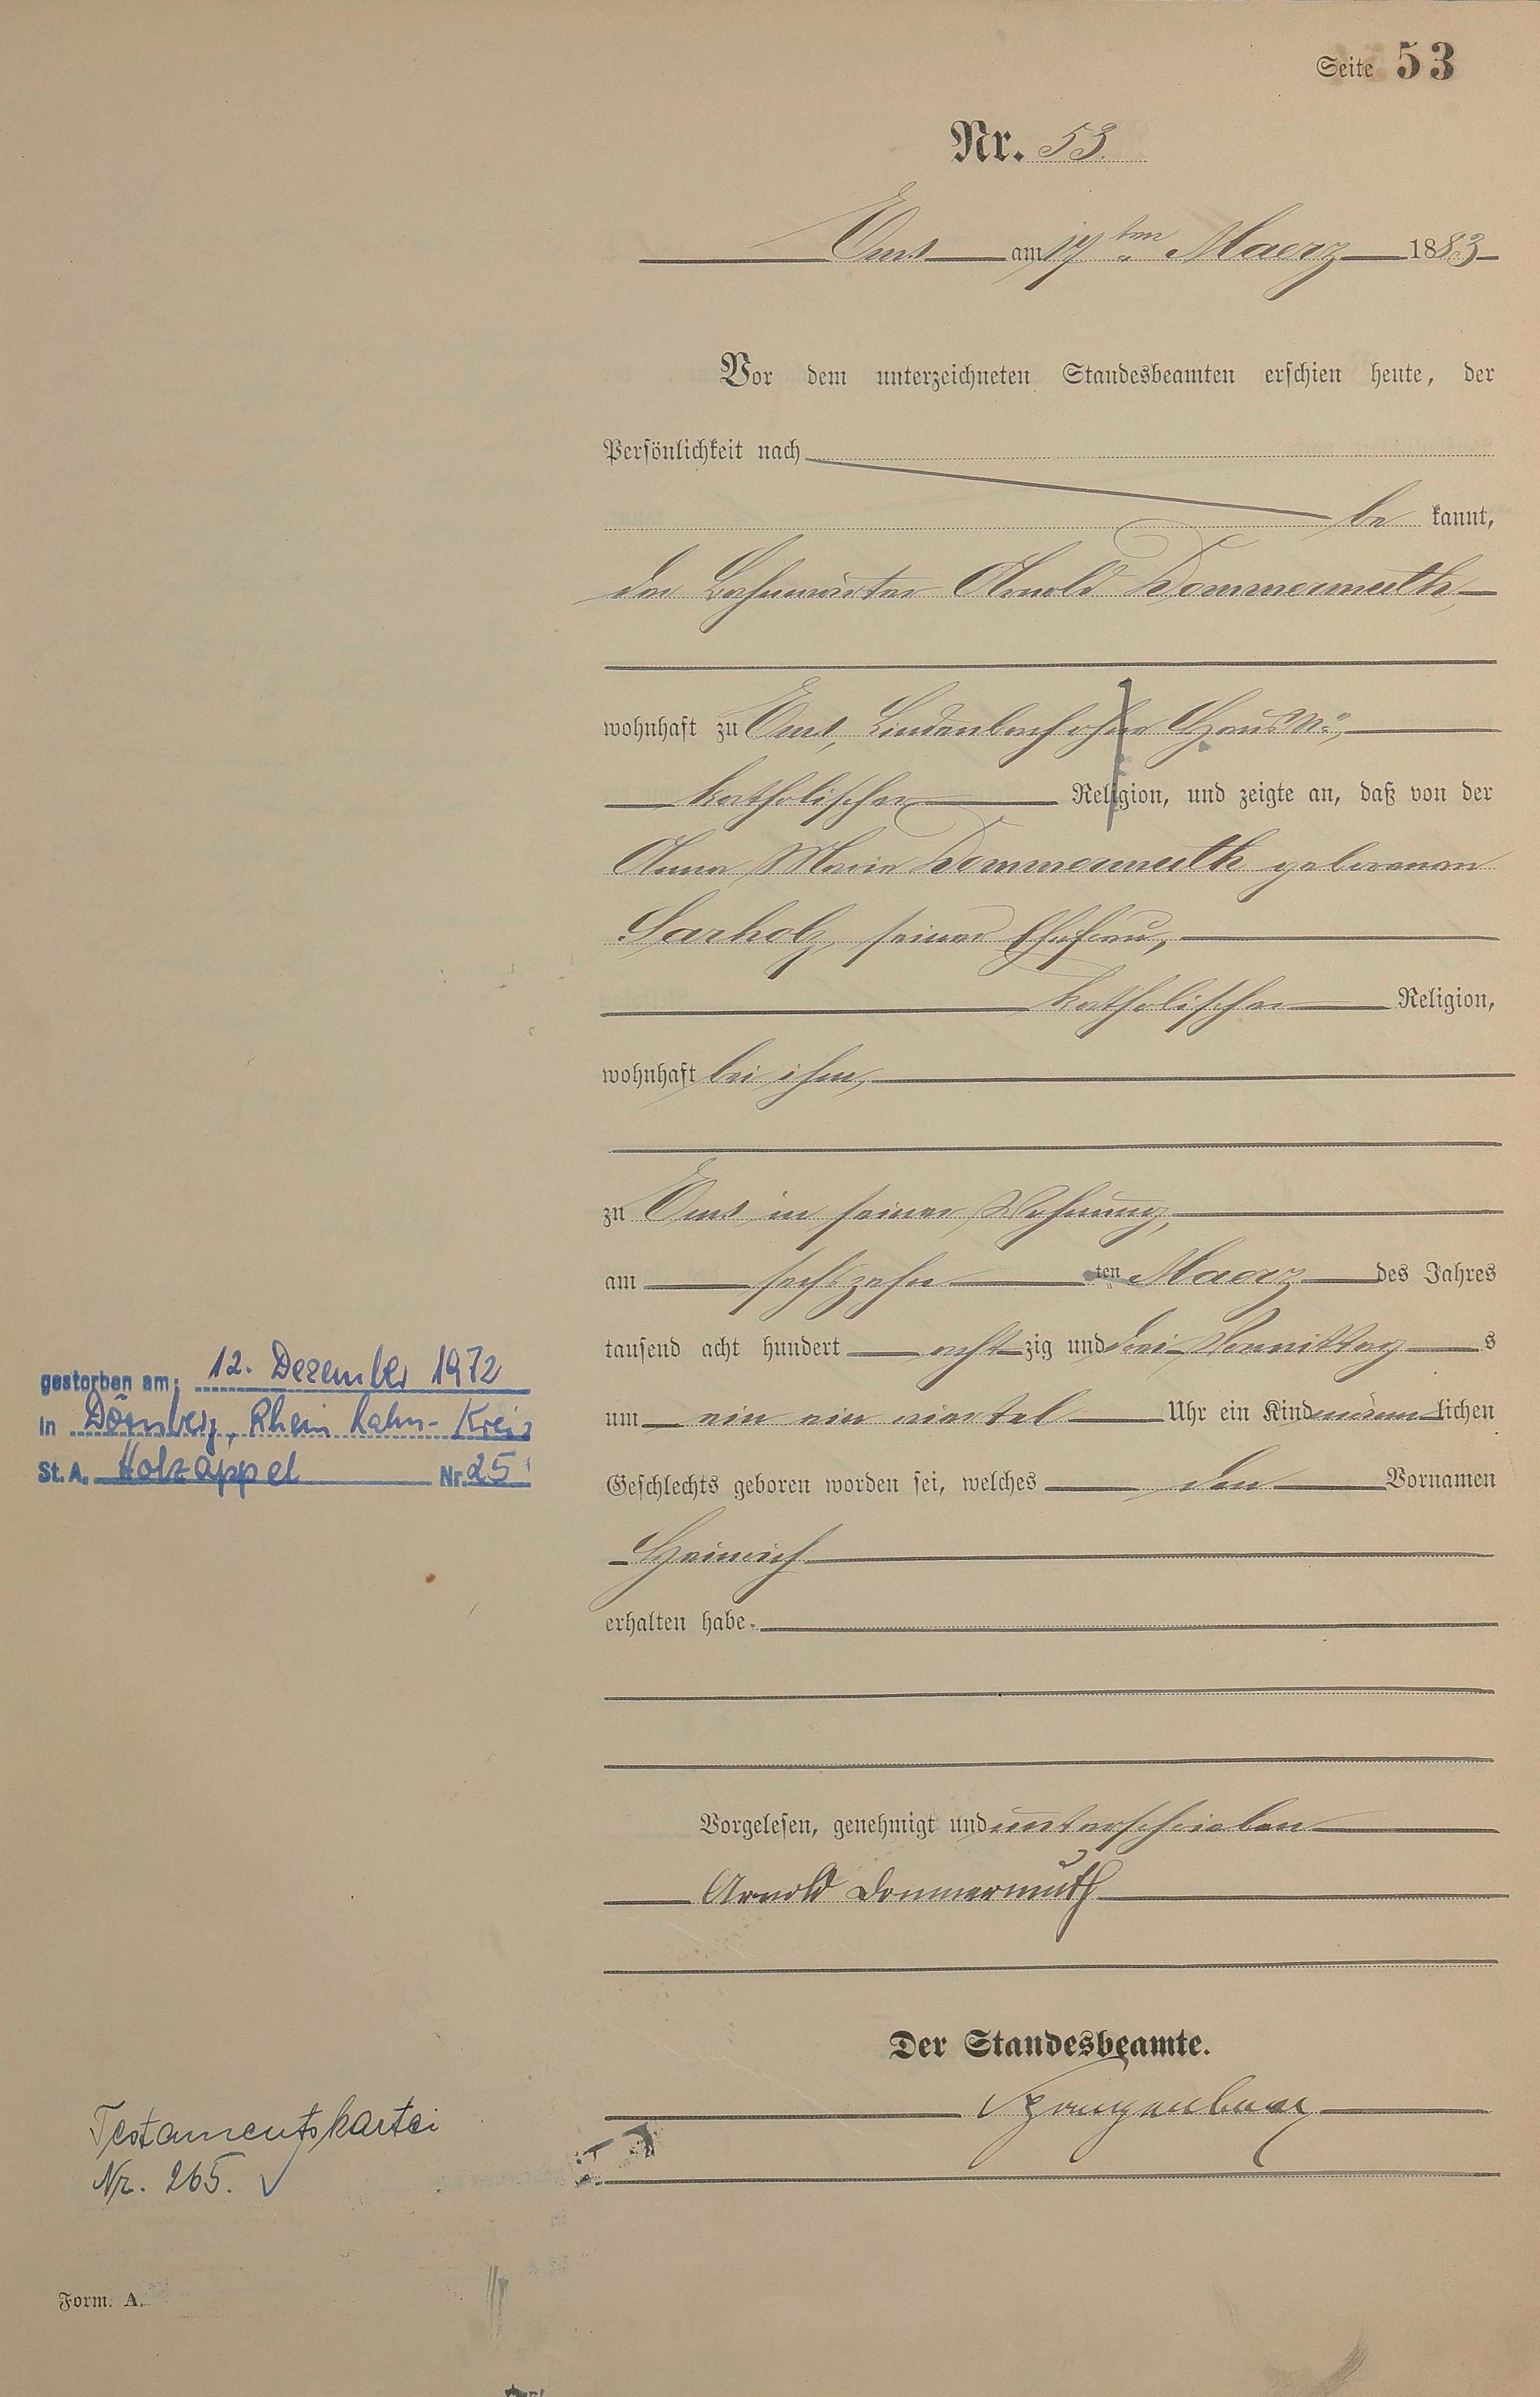 Seite 53
Nr. 53.
Ems am 17ten Maerz 1883
Vor dem unterzeichneten Standesbeamten erschien heute, der
Persönlichkeit nach
be kannt,
der Bahnwärter Arnold Dommermuth
wohnhaft zu Ems, Lindenbach ohne Haus No,
katholischer Religion, und zeigte an, daß von der
Anna Maria Dommermuth geborenen
Sarholz, seiner Ehefrau,
katholischer Religion,
wohnhaft bei ihm,
zu Ems in seiner Wohnung,
am sechszehn ten Maerz des Jahres
tausend acht hundert acht zig und drei Vormittag s
um ein ein viertel Uhr ein Kind männ lichen
Geschlechts geboren worden sei, welches den Vornamen
Heinrich
erhalten habe.
Vorgelesen, genehmigt und unterschrieben
Arnold Dommermuth
Der Standesbeamte.
gestorben am: 12. Dezember 1972
in Dörnberg, Rhein Lahn-Kreis
St. A. Holzappel Nr. 25
Testamentskartei
Nr. 265. ✓
Form. A.